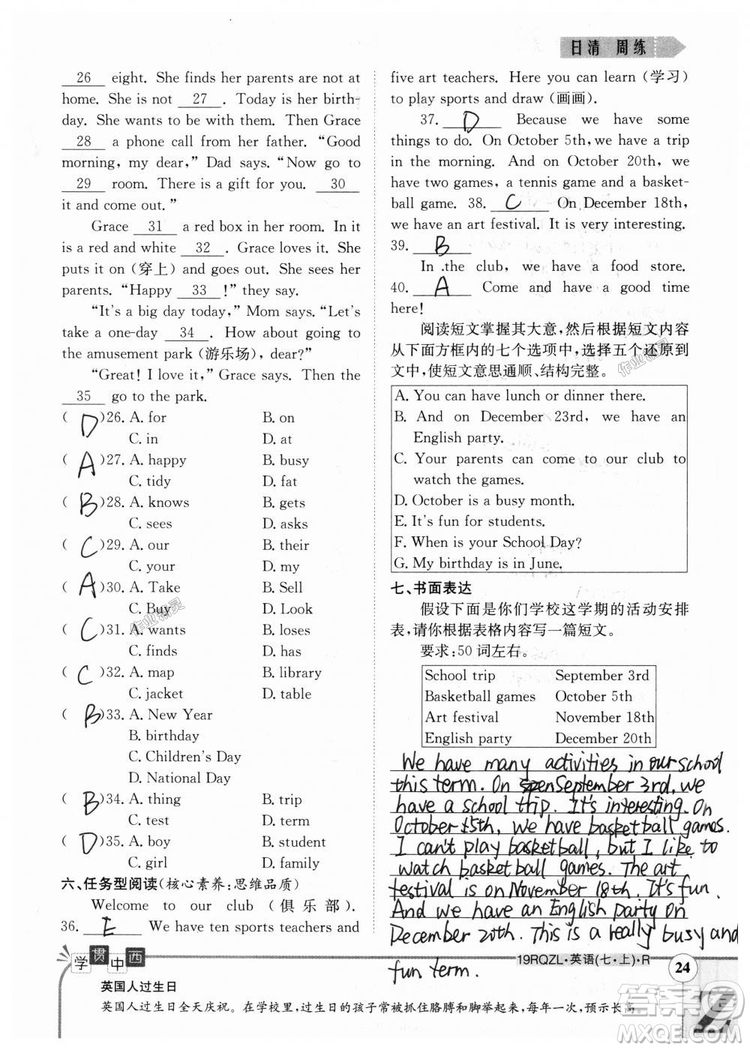 日清 周练
26 eight. She finds her parents are not at
home. She is not 27 . Today is her birth-
day. She wants to be with them. Then Grace
28 a phone call from her father. “Good
morning, my dear,” Dad says. “Now go to
29 room. There is a gift for you. 30
it and come out.”
Grace 31 a red box in her room. In it
is a red and white 32 . Grace loves it. She
puts it on (穿上) and goes out. She sees her
parents. “Happy 33 !” they say.
“It's a big day today,” Mom says. “Let's
take a one-day 34 . How about going to
the amusement park (游乐场), dear?”
“Great! I love it,” Grace says. Then the
35 go to the park.
( D )26. A. for B. on
C. in D. at
( A )27. A. happy B. busy
C. tidy D. fat
( B )28. A. knows B. gets
C. sees D. asks
( C )29. A. our B. their
C. your D. my
( A )30. A. Take B. Sell
C. Buy D. Look
( C )31. A. wants B. loses
C. finds D. has
( C )32. A. map B. library
C. jacket D. table
( B )33. A. New Year
B. birthday
C. Children's Day
D. National Day
( B )34. A. thing B. trip
C. test D. term
( D )35. A. boy B. student
C. girl D. family
六、任务型阅读(核心素养:思维品质)
Welcome to our club (俱乐部).
36. E We have ten sports teachers and
five art teachers. Here you can learn (学习)
to play sports and draw (画画).
37. D Because we have many
things to do. On October 5th, we have a trip
in the morning. And on October 20th, we
have two games, a tennis game and a basket-
ball game. 38. C On December 18th,
we have an art festival. It is very interesting.
39. B
In the club, we have a food store.
40. A Come and have a good time
here!
阅读短文掌握其大意,然后根据短文内容
从下面方框内的七个选项中,选择五个还原到
文中,使短文意思通顺、结构完整。
A. You can have lunch or dinner there.
B. And on December 23rd, we have an
English party.
C. Your parents can come to our club to
watch the games.
D. October is a busy month.
E. It's fun for students.
F. When is your School Day?
G. My birthday is in June.
七、书面表达
假设下面是你们学校这学期的活动安排
表,请你根据表格内容写一篇短文。
要求:50 词左右。
School trip September 3rd
Basketball games October 5th
Art festival November 18th
English party December 20th
We have many activities in our school
this term. On September 3rd, we
have a school trip. It's interesting. On
October 5th, we have basketball games.
I can't play basketball, but I like to
watch basketball games. The art
festival is on November 18th. It's fun.
And we have an English party on
December 20th. This is a really busy and
fun term.
学贯中西
英国人过生日
英国人过生日全天庆祝。在学校里,过生日的孩子常被抓住胳膊和脚举起来,每年一次,预示长高。
19RQZL·英语(七·上)·R
24
答案
MXQE.COM
作业精灵